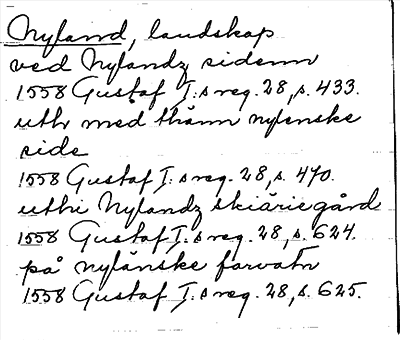 Nyland, landskap
ved Nylandz sidenn
1558 Gustaf I:s reg. 28, s. 433.
uthr med thänn nylenske
side
1558 Gustaf I:s reg. 28, s. 470.
uthi Nylandz skiäriegård
1558 Gustaf I:s reg. 28, s. 624.
på nylänske farvatn
1558 Gustaf I:s reg. 28, s. 625.